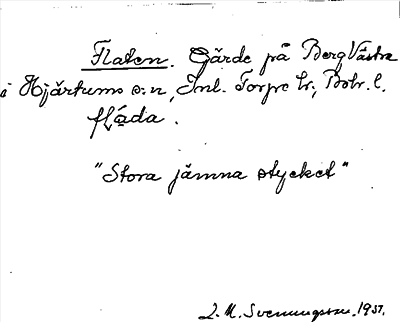 Flaten. Gärde på Berg Västra
i Hjärtums s:n, Inl. Torpe hr., Boh. l.
flåda.
"Stora jämna stycket"
L. M. Svenungsson. 1937.